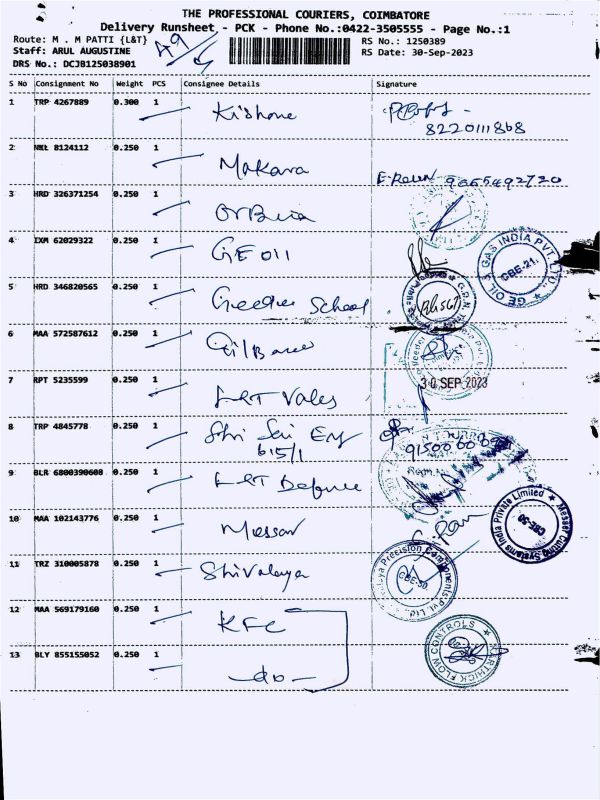 THE PROFESSIONAL COURIERS, COIMBATORE
Delivery Runsheet - PCK - Phone No.:0422-3505555 - Page No.:1
Route: M . M PATTI {L&T}
RS No.: 1250389
Staff: ARUL AUGUSTINE
RS Date: 30-Sep-2023
DRS No.: DCJB125038901
S No Consignment No Weight PCS Consignee Details Signature
1 TRP 4267889 0.300 1 Kishore
8220111868
2 8124112 0.250 1 Makara
9865492720
3 HRD 326371254 0.250 1
4 IXM 62029322 0.250 1 GE Oil
GE OIL & GAS INDIA PVT. LTD.
CBE-21.
5 HRD 346820565 0.250 1 School
6 MAA 572587612 0.250 1
7 RPT 5235599 0.250 1 L&T Valves
30 SEP 2023
8 TRP 4845778 0.250 1 Shri Sai
615/1
9 BLR 6800390608 0.250 1 L&T Defence
10 MAA 102143776 0.250 1 Messer
Messer Cutting Systems India Private Limited
CBE-50
11 TRZ 310005878 0.250 1 Shivalaya
Precision Components Pvt. Ltd.
CBE-50
12 MAA 569179160 0.250 1 KFC
KARTHICK FLOW CONTROLS
13 BLY 855155052 0.250 1 -do-